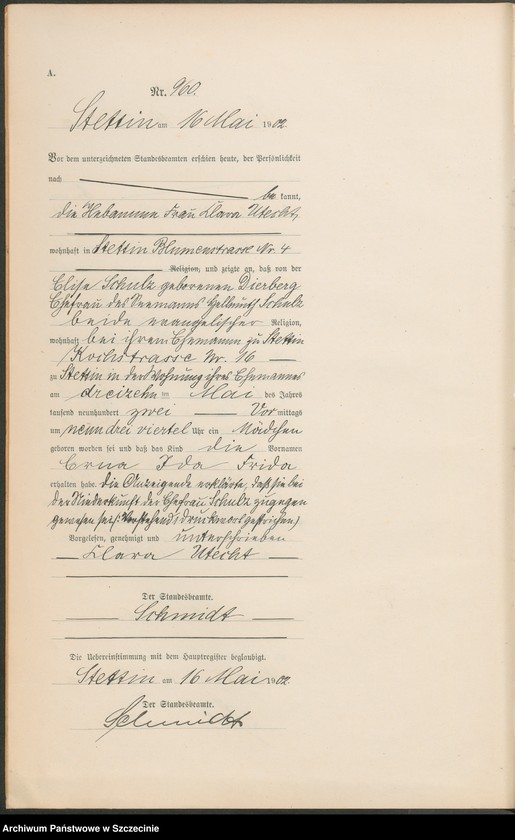 A.
Nr. 960.
Stettin am 16 Mai 1902.
Vor dem unterzeichneten Standesbeamten erschien heute, der Persönlichkeit
nach
be kannt,
die Hebamme Frau Klara Utecht,
wohnhaft in Stettin Blumenstrasse Nr. 4
Religion, und zeigte an, daß von der
Elise Schulz geborenen Dierberg
Ehefrau des Seemanns Hellmuth Schulz
beide evangelischer Religion,
wohnhaft bei ihrem Ehemanne zu Stettin
Kochstrasse Nr. 16
zu Stettin in der Wohnung ihres Ehemannes
am dreizehnten Mai des Jahres
tausend neunhundert zwei Vormittags
um neun drei viertel Uhr ein Mädchen
geboren worden sei und daß das Kind die Vornamen
Erna Ida Frida
erhalten habe. Die Anzeigende erklärte, daß sie bei
der Niederkunft der Ehefrau Schulz zugegen
gewesen sei. Vorstehend 1 Druckwort gestrichen)
Vorgelesen, genehmigt und unterschrieben
Klara Utecht
Der Standesbeamte.
Schmidt
Die Uebereinstimmung mit dem Hauptregister beglaubigt.
Stettin am 16 Mai 1902.
Der Standesbeamte.
Schmidt
Archiwum Państwowe w Szczecinie